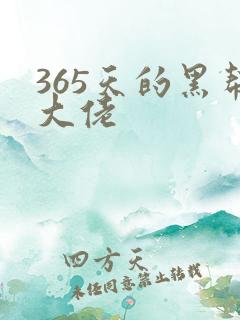 365天的黑帮
大佬
四方天
未经同意禁止转载